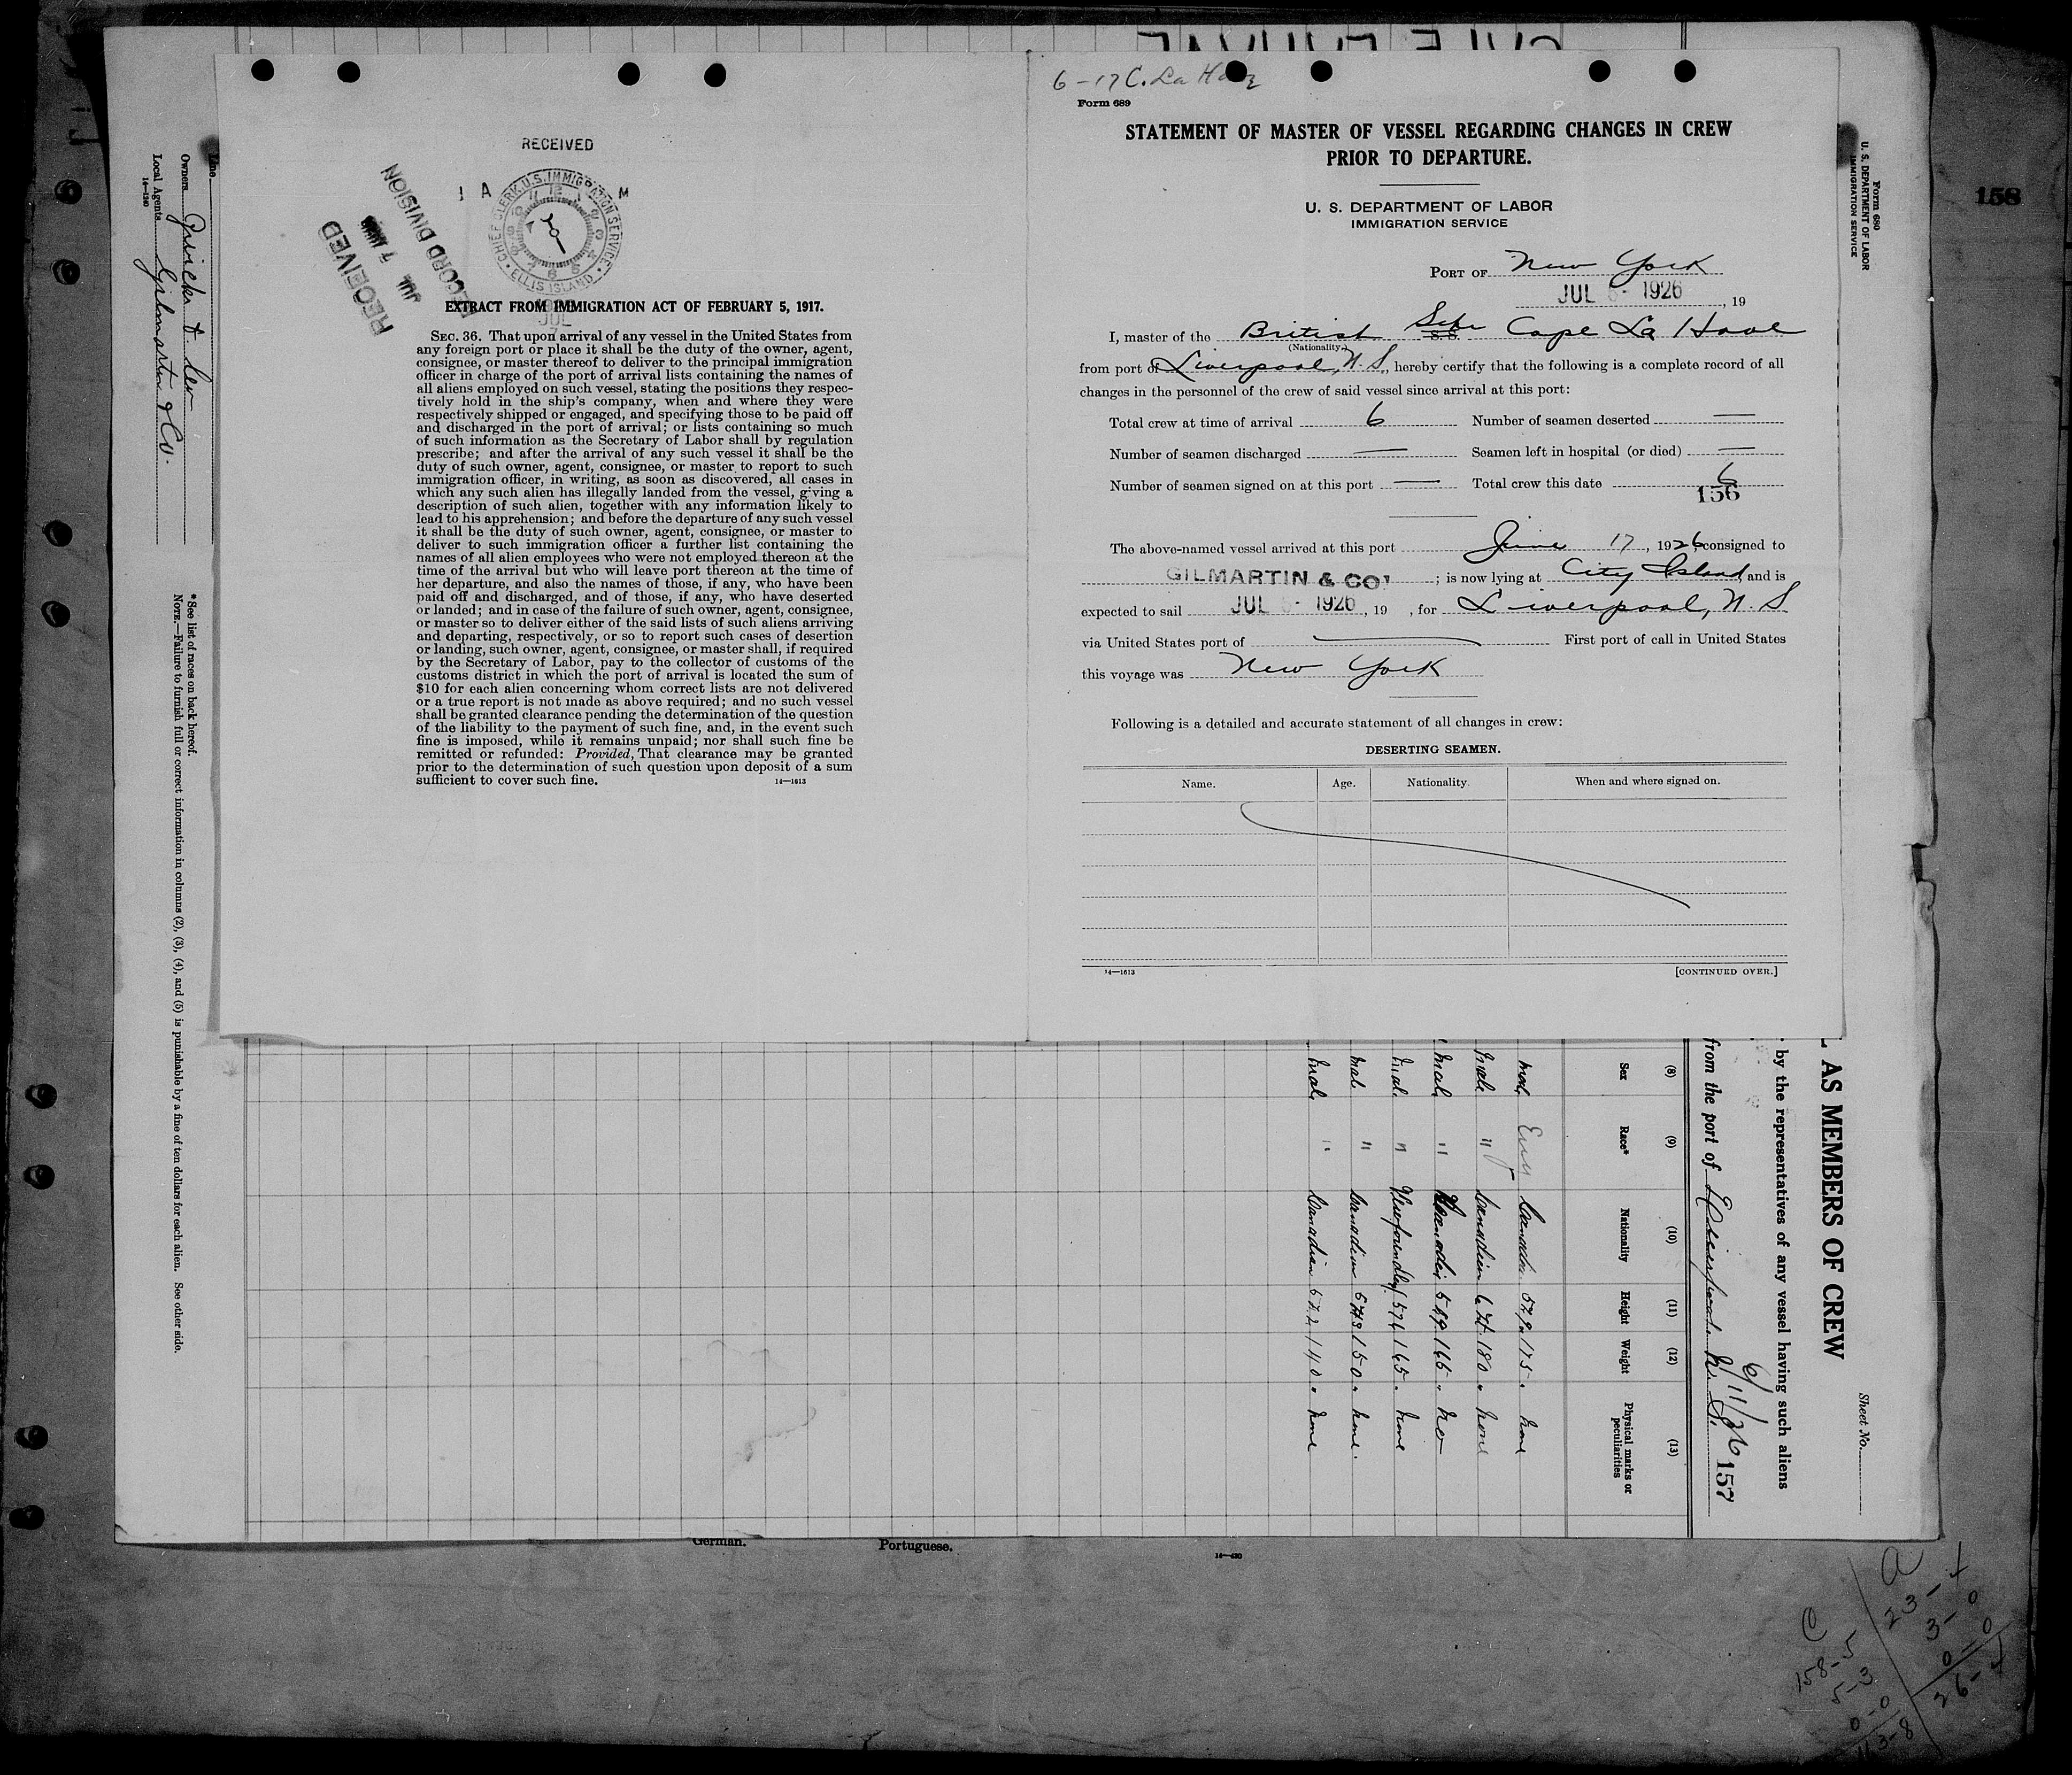 158
6-17 C. La Have
Form 689
STATEMENT OF MASTER OF VESSEL REGARDING CHANGES IN CREW
PRIOR TO DEPARTURE.
U. S. DEPARTMENT OF LABOR
IMMIGRATION SERVICE
PORT OF New York
JUL 1926, 19
I, master of the British Schr S.S. Cape La Have
(Nationality.)
from port of Liverpool, N.S., hereby certify that the following is a complete record of all
changes in the personnel of the crew of said vessel since arrival at this port:
Total crew at time of arrival 6 Number of seamen deserted —
Number of seamen discharged — Seamen left in hospital (or died) —
Number of seamen signed on at this port — Total crew this date 6
156
The above-named vessel arrived at this port June 17, 1926, consigned to
GILMARTIN & CO.; is now lying at City Island, and is
expected to sail JUL - 1926, 19 , for Liverpool, N.S
via United States port of — First port of call in United States
this voyage was New York
Following is a detailed and accurate statement of all changes in crew:
DESERTING SEAMEN.
Name. Age. Nationality. When and where signed on.
14—1613 [CONTINUED OVER.]
RECEIVED
A M
CHIEF CLERK, U.S. IMMIGRATION SERVICE
ELLIS ISLAND
JUL
RECEIVED
JUL 7
RECORD DIVISION
EXTRACT FROM IMMIGRATION ACT OF FEBRUARY 5, 1917.
SEC. 36. That upon arrival of any vessel in the United States from
any foreign port or place it shall be the duty of the owner, agent,
consignee, or master thereof to deliver to the principal immigration
officer in charge of the port of arrival lists containing the names of
all aliens employed on such vessel, stating the positions they respec-
tively hold in the ship's company, when and where they were
respectively shipped or engaged, and specifying those to be paid off
and discharged in the port of arrival; or lists containing so much
of such information as the Secretary of Labor shall by regulation
prescribe; and after the arrival of any such vessel it shall be the
duty of such owner, agent, consignee, or master to report to such
immigration officer, in writing, as soon as discovered, all cases in
which any such alien has illegally landed from the vessel, giving a
description of such alien, together with any information likely to
lead to his apprehension; and before the departure of any such vessel
it shall be the duty of such owner, agent, consignee, or master to
deliver to such immigration officer a further list containing the
names of all alien employees who were not employed thereon at the
time of the arrival but who will leave port thereon at the time of
her departure, and also the names of those, if any, who have been
paid off and discharged, and of those, if any, who have deserted
or landed; and in case of the failure of such owner, agent, consignee,
or master so to deliver either of the said lists of such aliens arriving
and departing, respectively, or so to report such cases of desertion
or landing, such owner, agent, consignee, or master shall, if required
by the Secretary of Labor, pay to the collector of customs of the
customs district in which the port of arrival is located the sum of
$10 for each alien concerning whom correct lists are not delivered
or a true report is not made as above required; and no such vessel
shall be granted clearance pending the determination of the question
of the liability to the payment of such fine, and, in the event such
fine is imposed, while it remains unpaid; nor shall such fine be
remitted or refunded: Provided, That clearance may be granted
prior to the determination of such question upon deposit of a sum
sufficient to cover such fine.
14—1613
Form 680
U. S. DEPARTMENT OF LABOR
IMMIGRATION SERVICE
Sheet No.
AS MEMBERS OF CREW
by the representatives of any vessel having such aliens
from the port of Liverpool N. S. 6/11/26
157
(8) (9) (10) (11) (12) (13)
Sex Race* Nationality Height Weight Physical marks or peculiarities
male Eng Canadian 175 none
male " Canadian 180 none
male " Canadian 165 no
male " 165 none
male " Canadian 150 none
male " Canadian 140 none
Line
Owners
Local Agents Gilmartin & Co.
14—430
*See list of races on back hereof.
NOTE.—Failure to furnish full or correct information in columns (2), (3), (4), and (5) is punishable by a fine of ten dollars for each alien. See other side.
German. Portuguese.
14—430
A
23-4
3-0
0-0
26-4
C
158-5
5-3
0-0